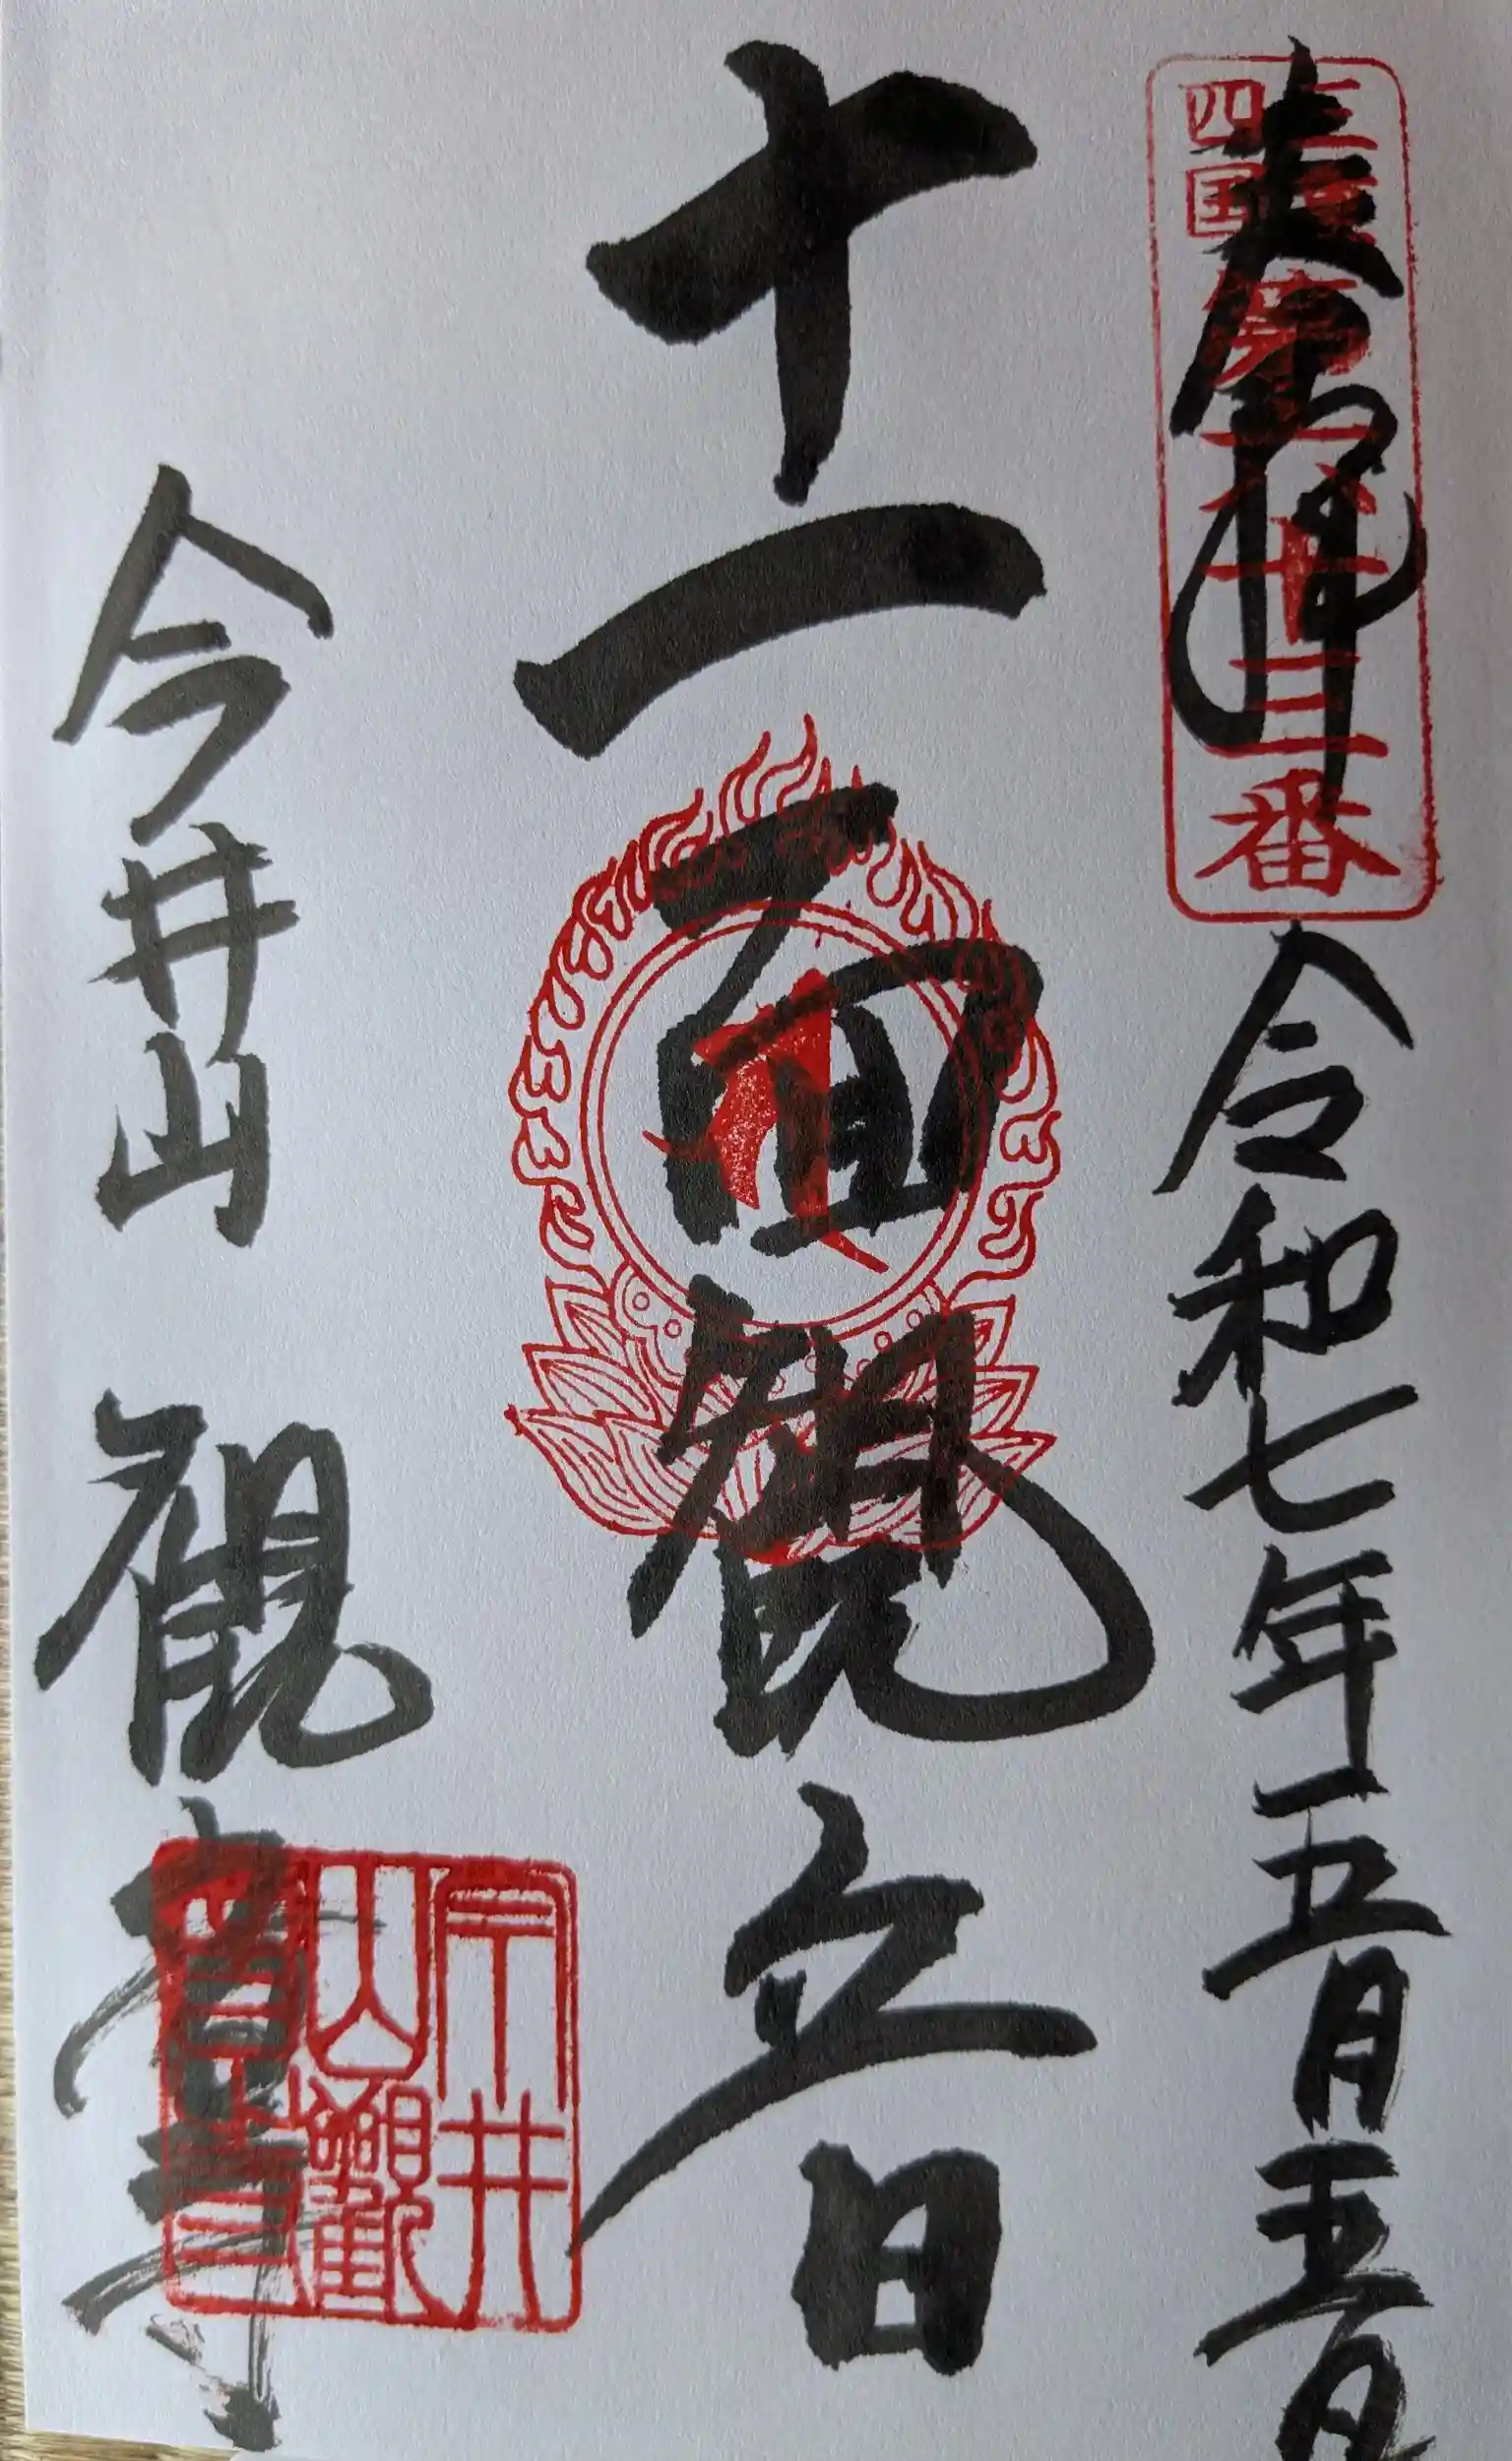 奉拝
三河
四国
第六十三番
令和七年五月五日
十一面観音
今井山 観音寺
今井山観音寺